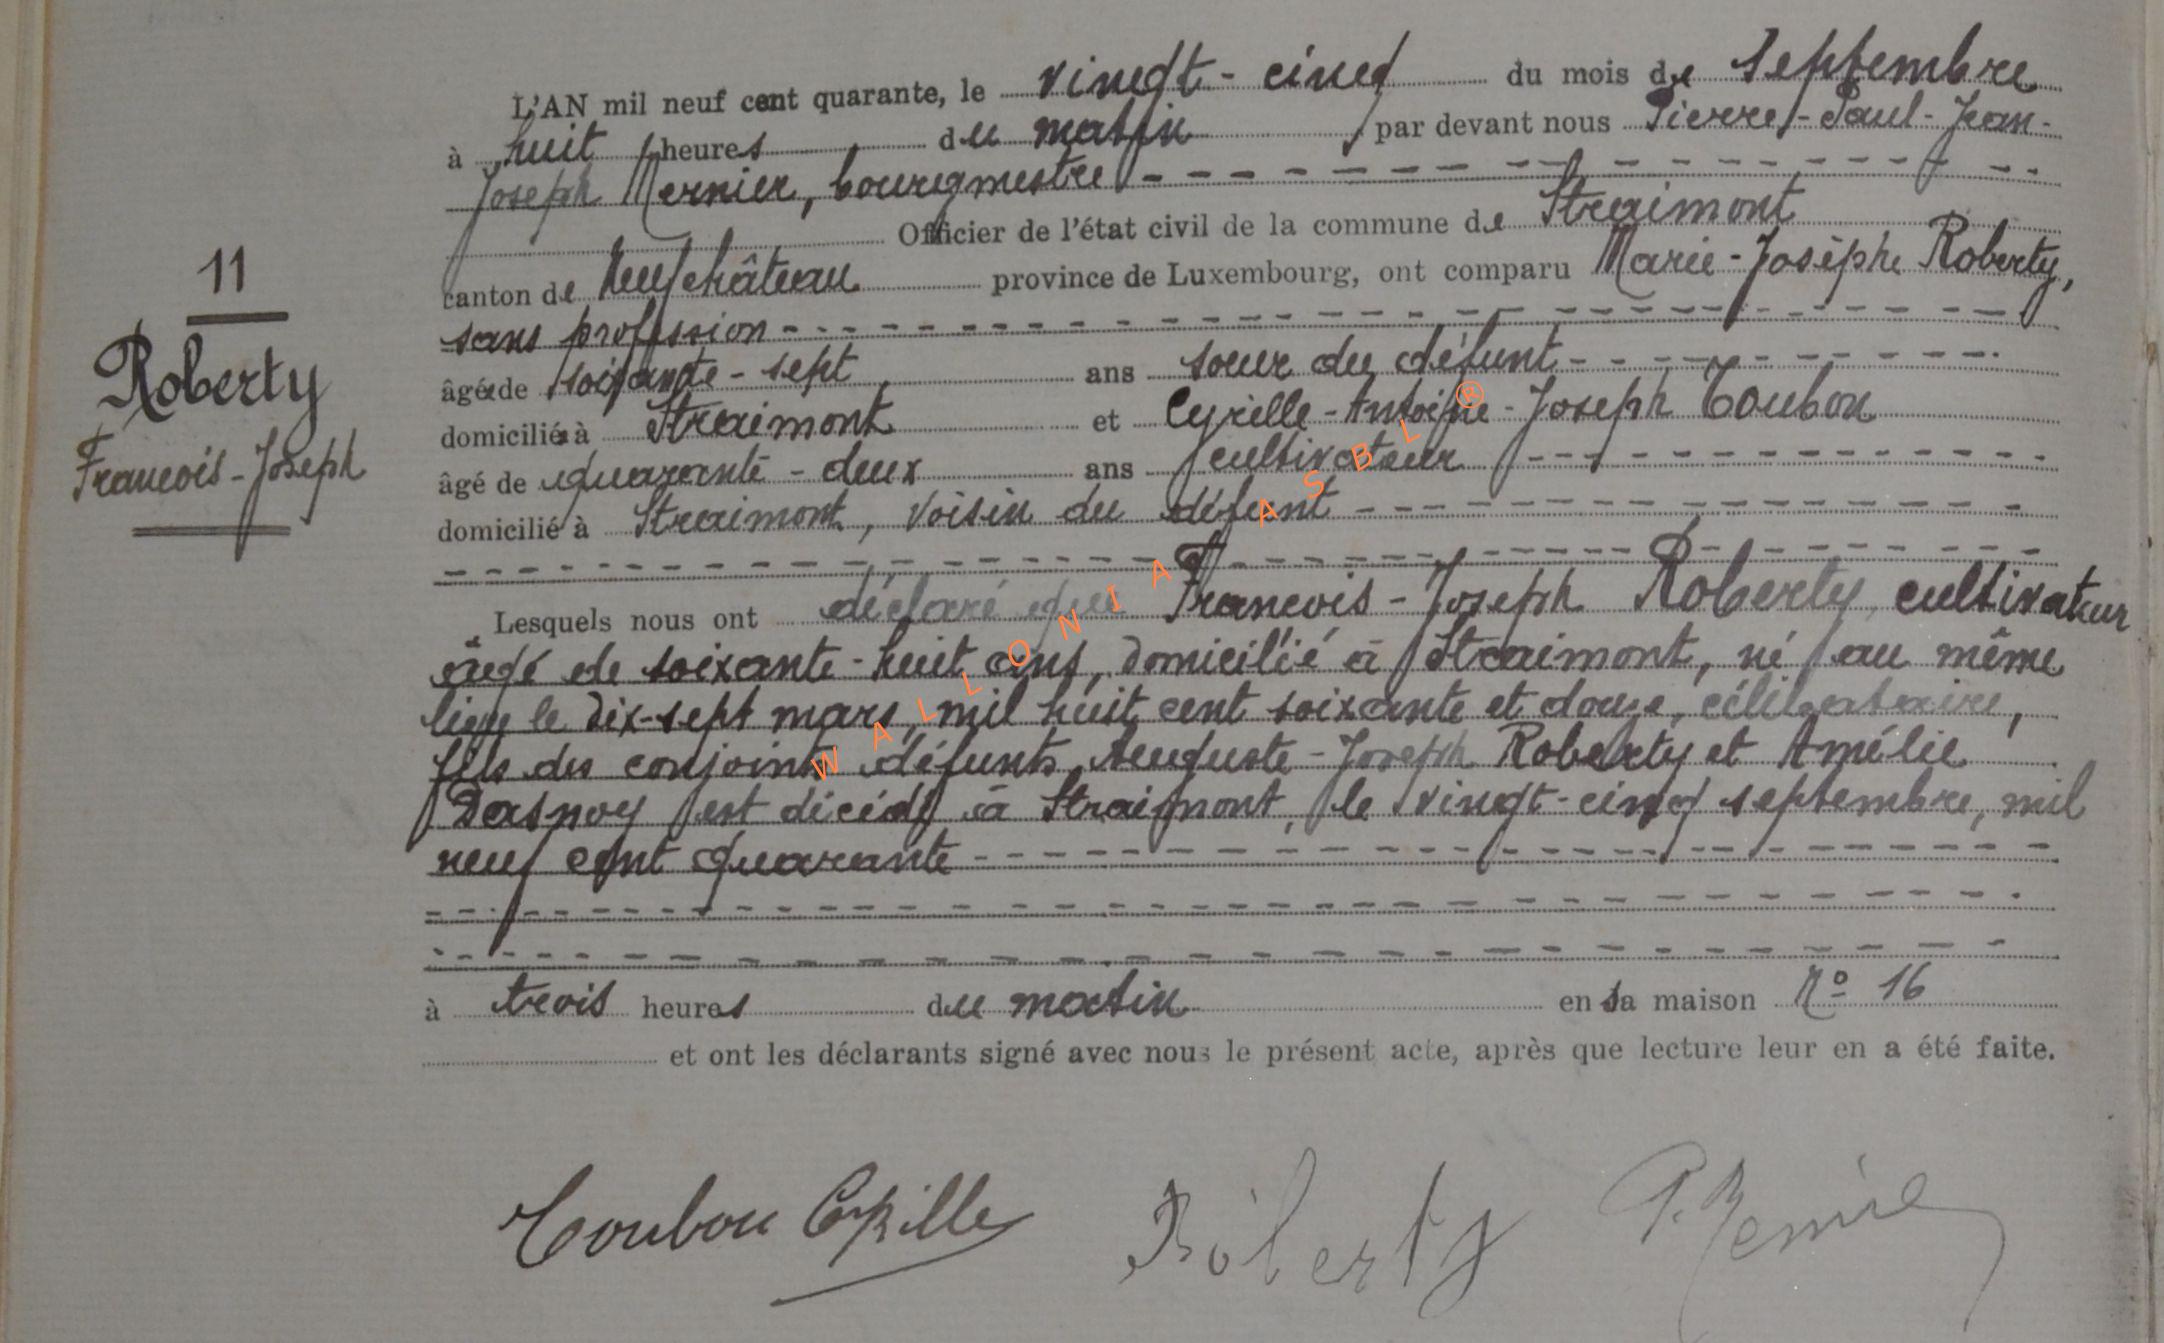 L'AN mil neuf cent quarante, le vingt-cinq du mois de septembre
à huit heures du matin, par devant nous Pierre-Paul-Jean-
Joseph Mernier, bourgmestre
Officier de l'état civil de la commune de Straimont
11
canton de Neufchâteau province de Luxembourg, ont comparu Marie-Josèphe Roberty,
sans profession
Roberty
âgée de soixante-sept ans soeur du défunt
domiciliée à Straimont et Cyrille-Antoine-Joseph Toubon
François-Joseph
âgé de quarante-deux ans cultivateur
domicilié à Straimont, voisin du défunt
Lesquels nous ont déclaré que François-Joseph Roberty, cultivateur
âgé de soixante-huit ans, domicilié à Straimont, né au même
lieu le dix-sept mars mil huit cent soixante et douze, célibataire,
fils des conjoints défunts Auguste-Joseph Roberty et Amélie
Dasnoy est décédé à Straimont, le vingt-cinq septembre, mil
neuf cent quarante
à trois heures du matin en sa maison N° 16
et ont les déclarants signé avec nous le présent acte, après que lecture leur en a été faite.
Toubon Cyrille Roberty
WALLONIA ASBL ®